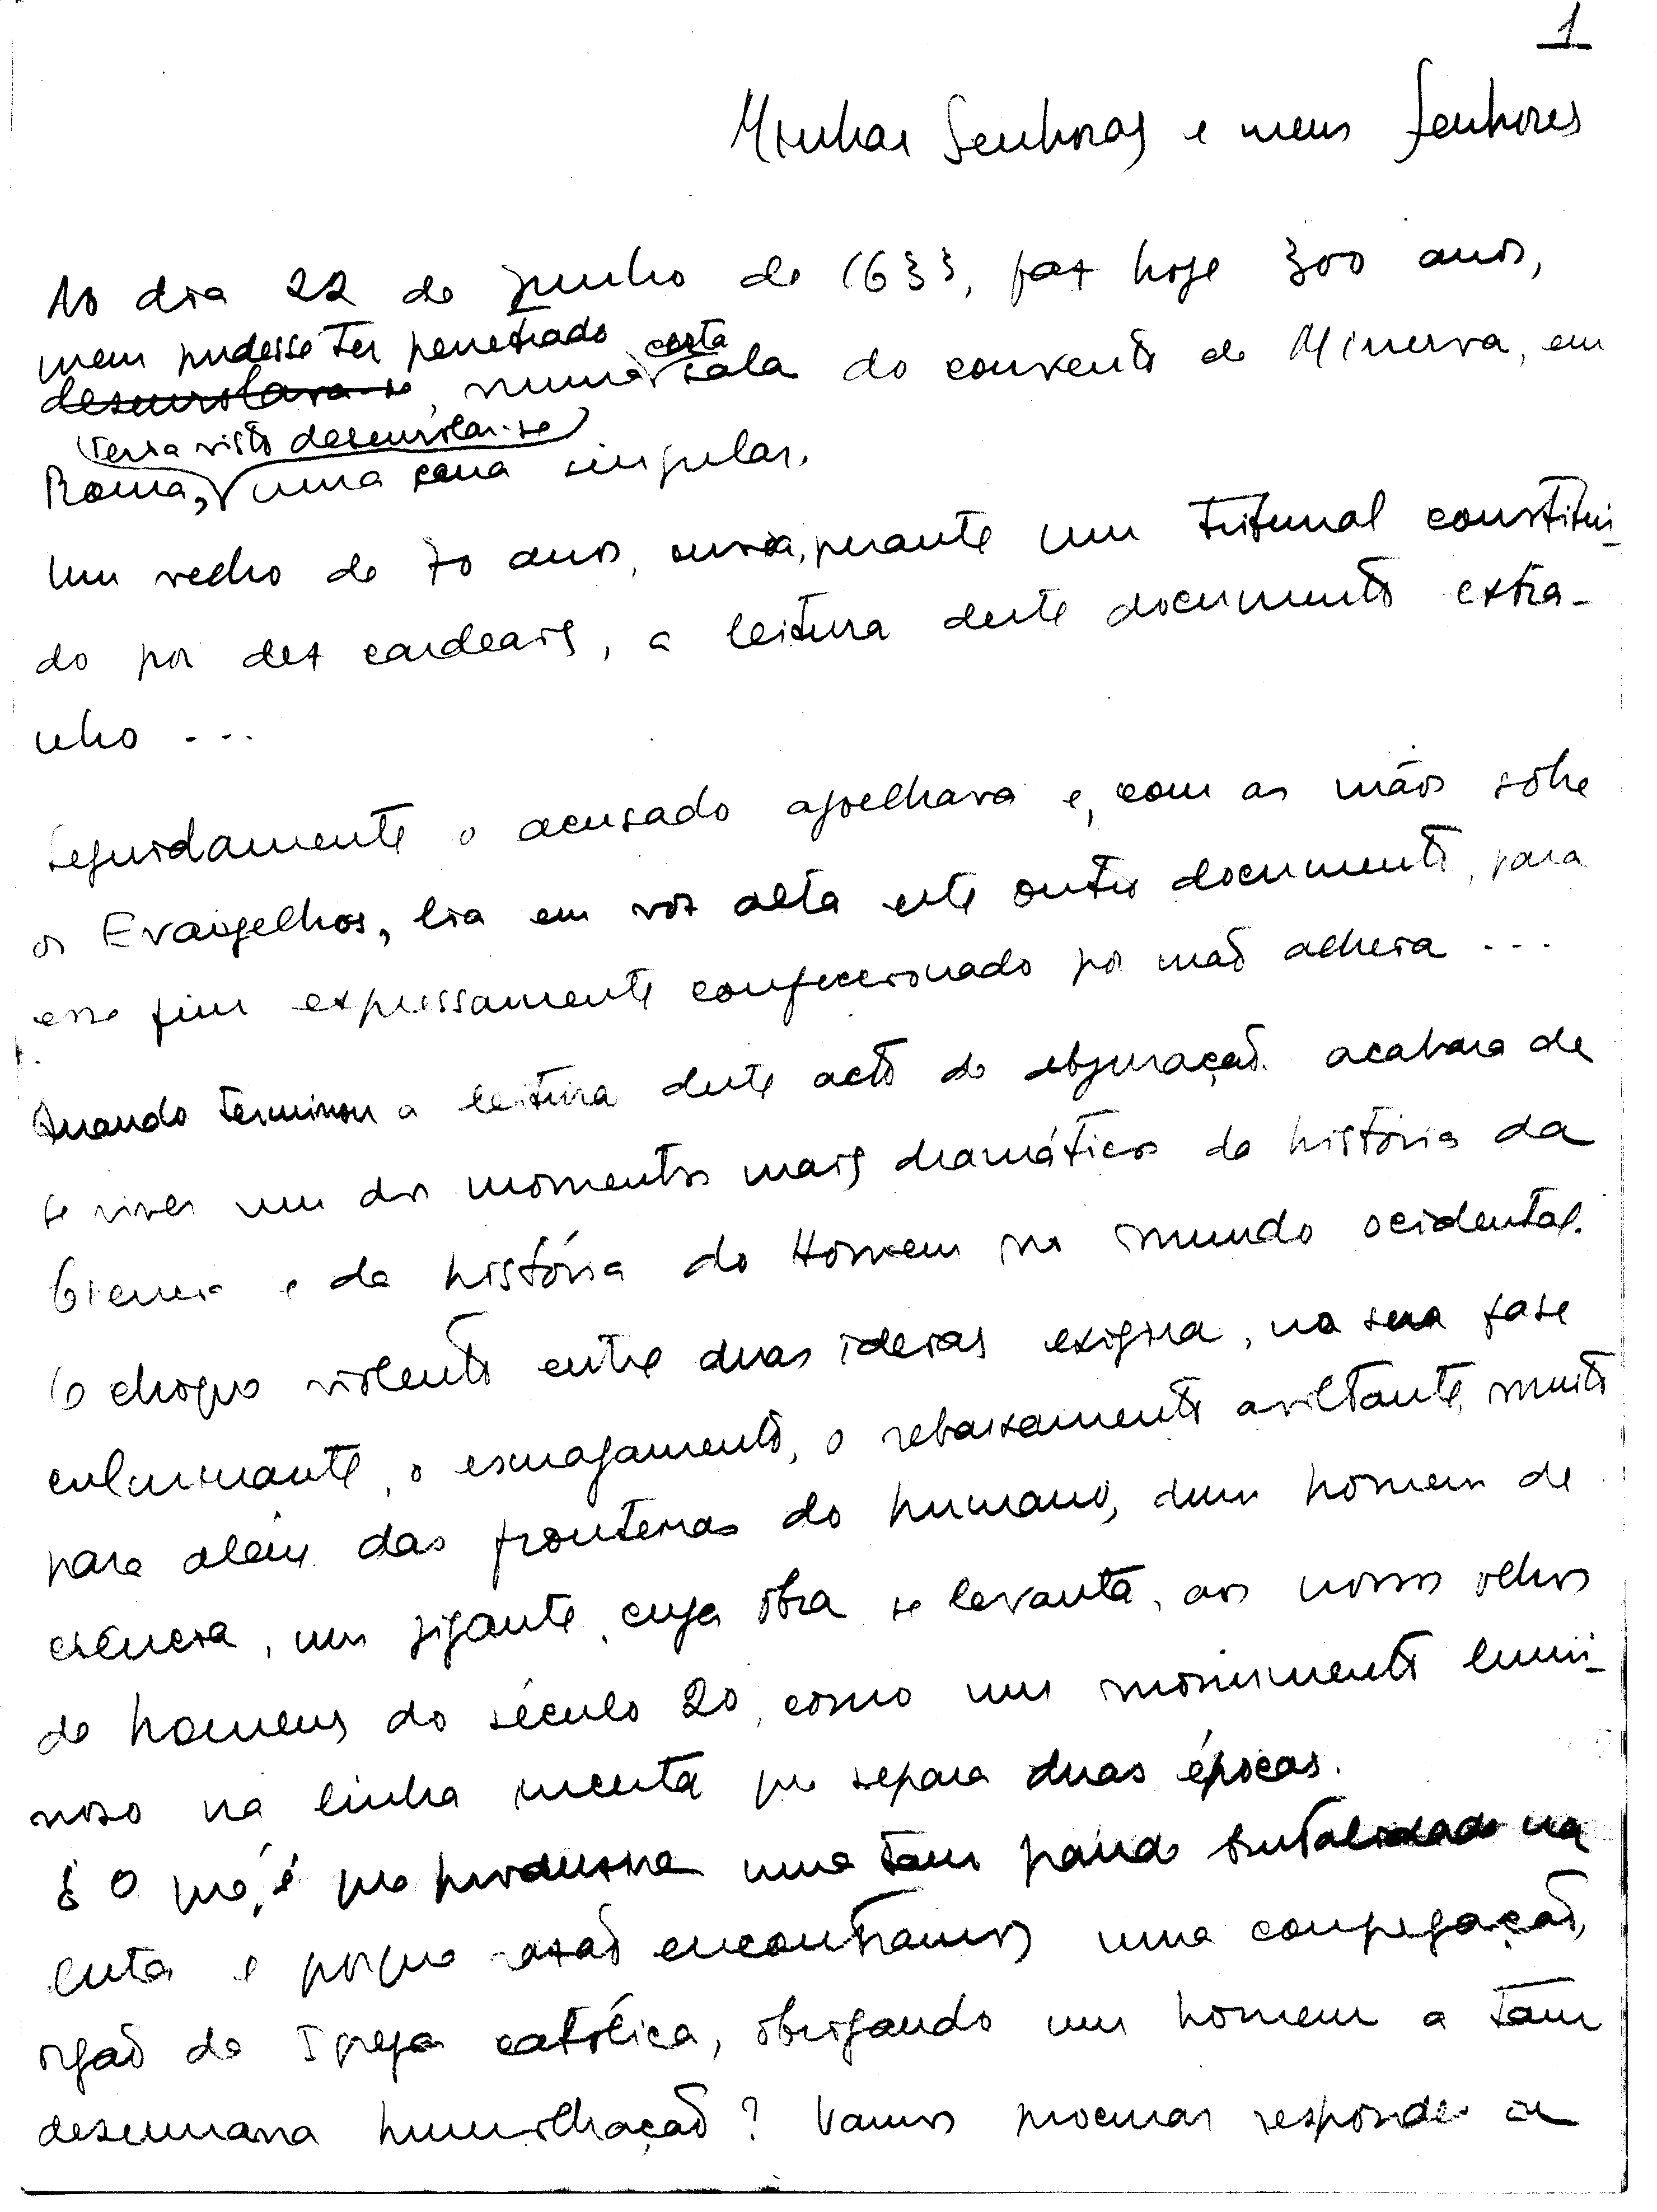 1
Minhas Senhoras e meus Senhores
No dia 22 de Junho de 1633, faz hoje 300 anos,
quem pudesse ter penetrado
desenrolava-se, numa certa sala do convento de Minerva, em
teria visto desenrolar-se
Roma, uma cena singular.
Um velho de 70 anos, ouvia, perante um tribunal constituí-
do por dez cardeais, a leitura deste documento extra-
nho ...
Seguidamente o acusado ajoelhava e, com as mãos sôbre
os Evangelhos, lia em voz alta este outro documento, para
esse fim expressamente confeccionado por mão alheia ...
Quando terminou a leitura deste acto de abjuração. acabara de
se viver um dos momentos mais dramáticos da história da
Ciencia e da história do Homem no mundo ocidental.
O choque violento entre duas ideias exigira, na sua fase
culminante, o esmagamento, o rebaixamento aviltante, muito
para além das fronteiras do humano, dum homem de
ciência, um gigante, cuja obra se levanta, aos nossos olhos
de homens do século 20, como um monumento lumi-
noso na linha incerta que separa duas épocas.
¿ O que é que produzira uma tam grande brutalidade na
luta e porque razão encontramos uma congregação,
orgão da Igreja católica, obrigando um homem a tam
desumana humilhação? Vamos procurar responder a